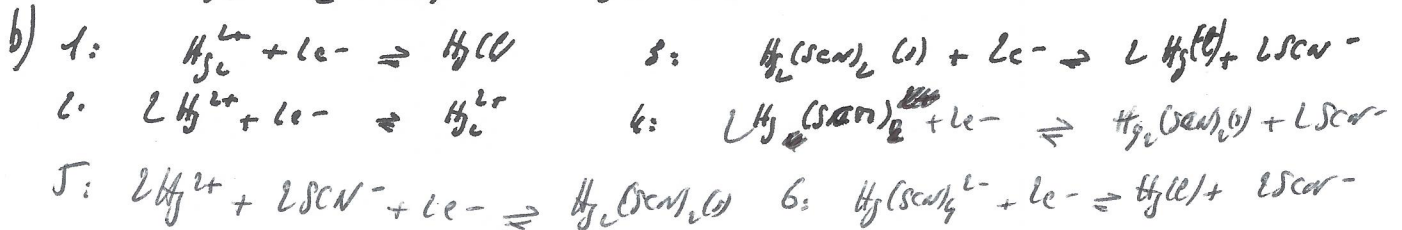 b) 1: Hg₂²⁺ + 2e- ⇌ Hg(l) 3: Hg₂(SCN)₂ (s) + 2e- ⇌ 2 Hg(l) + 2SCN -
2. 2 Hg²⁺ + 2e- ⇌ Hg₂²⁺ 4: 2Hg (SCN)₂ + 2e- ⇌ Hg₂(SCN)₂(s) + 2SCN-
5: 2Hg²⁺ + 2SCN - + 2e- ⇌ Hg₂(SCN)₂(s) 6: Hg(SCN)₄²⁻ + 2e- ⇌ Hg(l) + 2SCN-